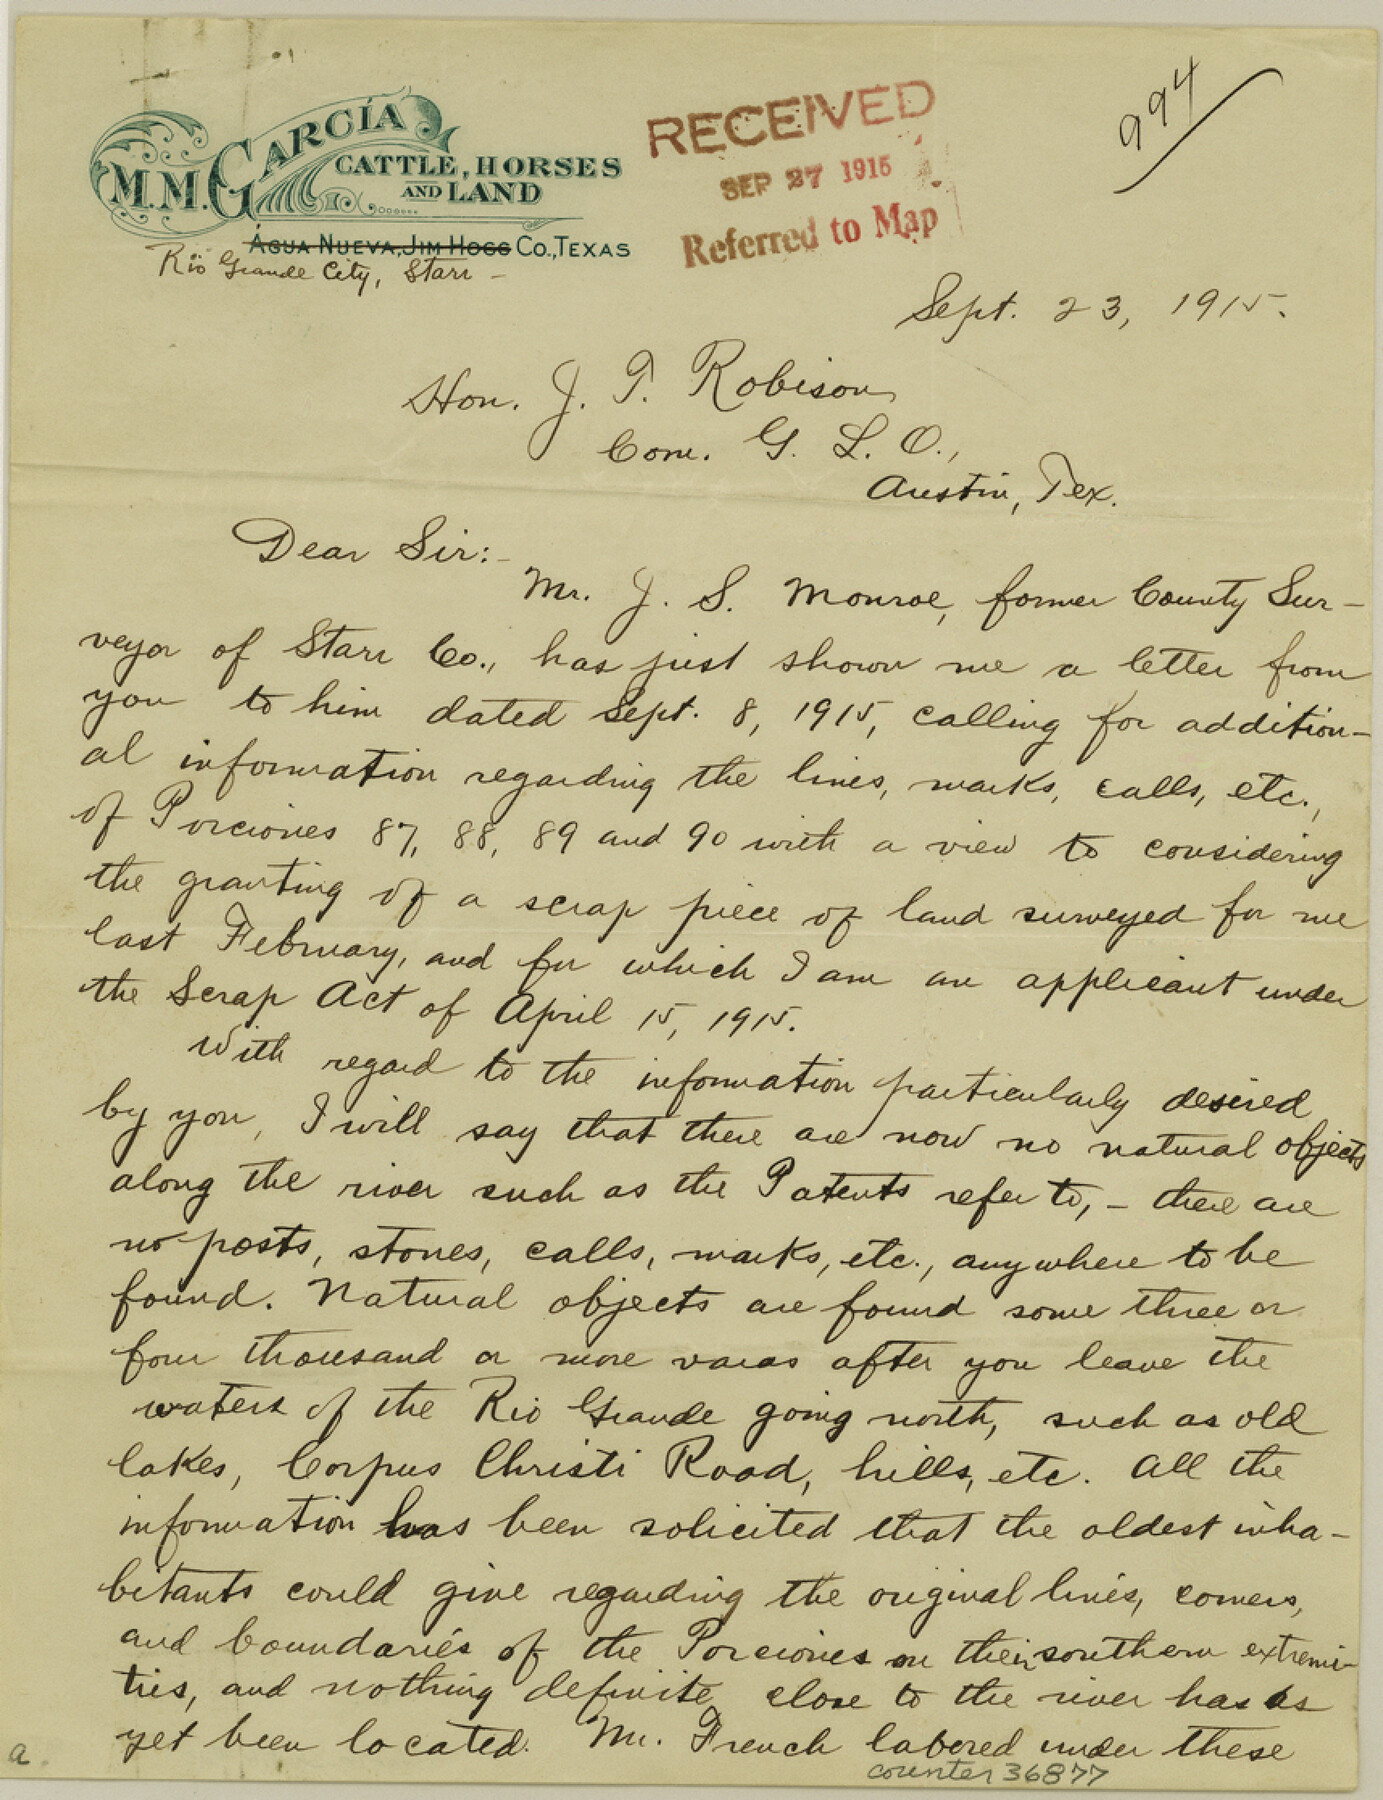 M. M. GARCÍA
CATTLE, HORSES
AND LAND
AGUA NUEVA, JIM HOGG CO., TEXAS
Rio Grande City, Starr –
RECEIVED
SEP 27 1915
Referred to Map
994
Sept. 23, 1915.
Hon. J. T. Robison,
Com. G. L. O.,
Austin, Tex.
Dear Sir:-
Mr. J. S. Monroe, former County Sur-
veyor of Starr Co., has just shown me a letter from
you to him dated Sept. 8, 1915, calling for addition-
al information regarding the lines, marks, calls, etc.,
of Porciones 87, 88, 89 and 90 with a view to considering
the granting of a scrap piece of land surveyed for me
last February, and for which I am an applicant under
the Scrap Act of April 15, 1915.
With regard to the information particularly desired
by you, I will say that there are now no natural objects
along the river such as the Patents refer to, – there are
no posts, stones, calls, marks, etc., anywhere to be
found. Natural objects are found some three or
four thousand or more varas after you leave the
waters of the Rio Grande going north, such as old
lakes, Corpus Christi Road, hills, etc. All the
information has been solicited that the oldest inha-
bitants could give regarding the original lines, corners,
and boundaries of the Porciones on their southern extremi-
ties, and nothing definite close to the river has as
yet been located. Mr. French labored under these
counter 36877
a.